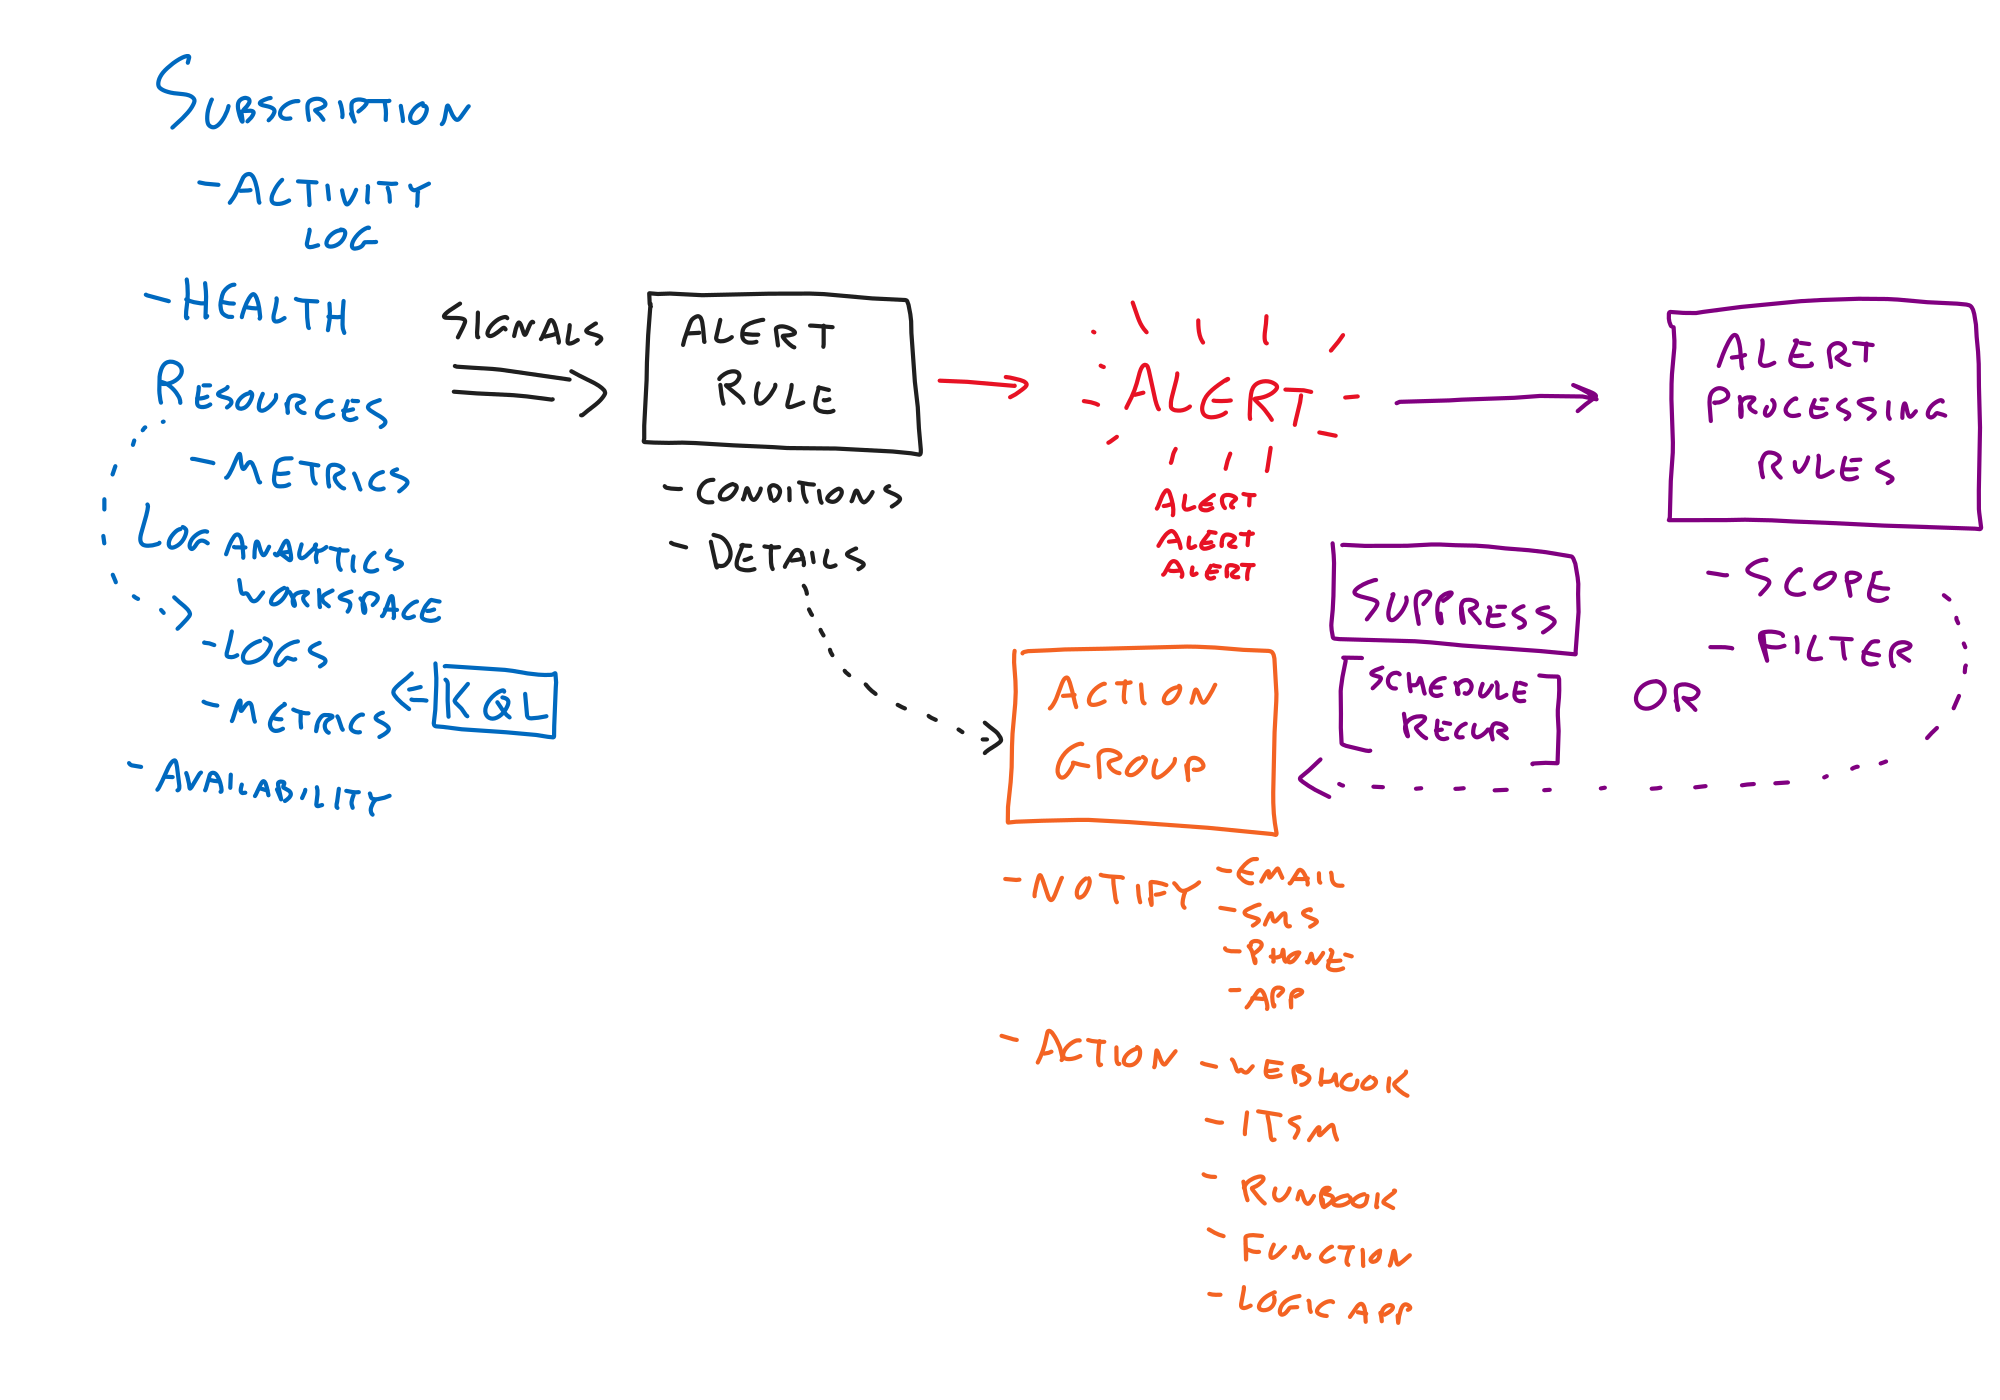 SUBSCRIPTION
- ACTIVITY
LOG
- HEALTH
RESOURCES
- METRICS
LOG ANALYTICS
WORKSPACE
- LOGS
- METRICS
KQL
- AVAILABILITY
SIGNALS
ALERT
RULE
- CONDITIONS
- DETAILS
ALERT
ALERT
ALERT
ALERT
ALERT
PROCESSING
RULES
- SCOPE
- FILTER
SUPPRESS
SCHEDULE
RECUR
OR
ACTION
GROUP
- NOTIFY
- EMAIL
- SMS
- PHONE
- APP
- ACTION
- WEBHOOK
- ITSM
- RUNBOOK
- FUNCTION
- LOGIC APP